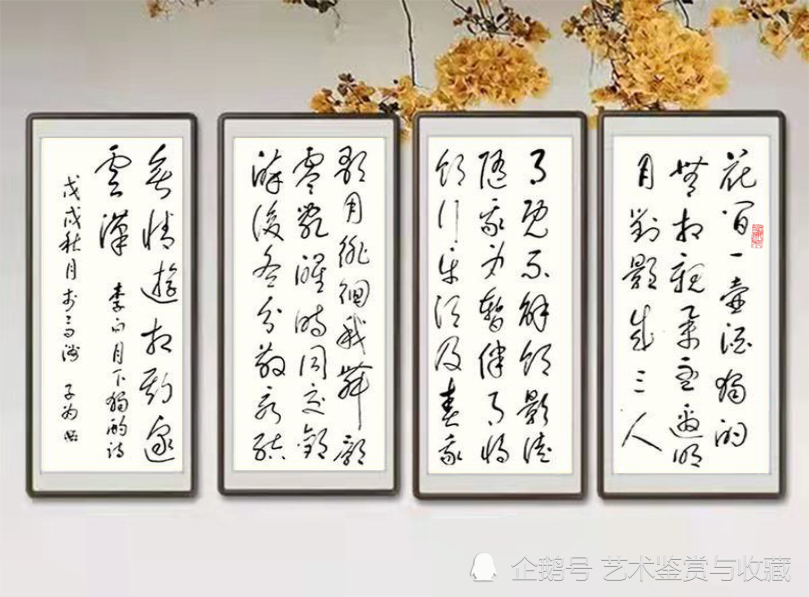 花间一壶酒獨酌
無相親举杯邀明
月對影成三人
月既不解飲影徒
随我身暫伴月将
影行樂须及春我
歌月徘徊我舞影
零亂醒時同交歡
醉後各分散永结
無情遊相期邈
雲漢 李白月下獨酌诗
戊戌秋月于 子为书
企鹅号 艺术鉴赏与收藏